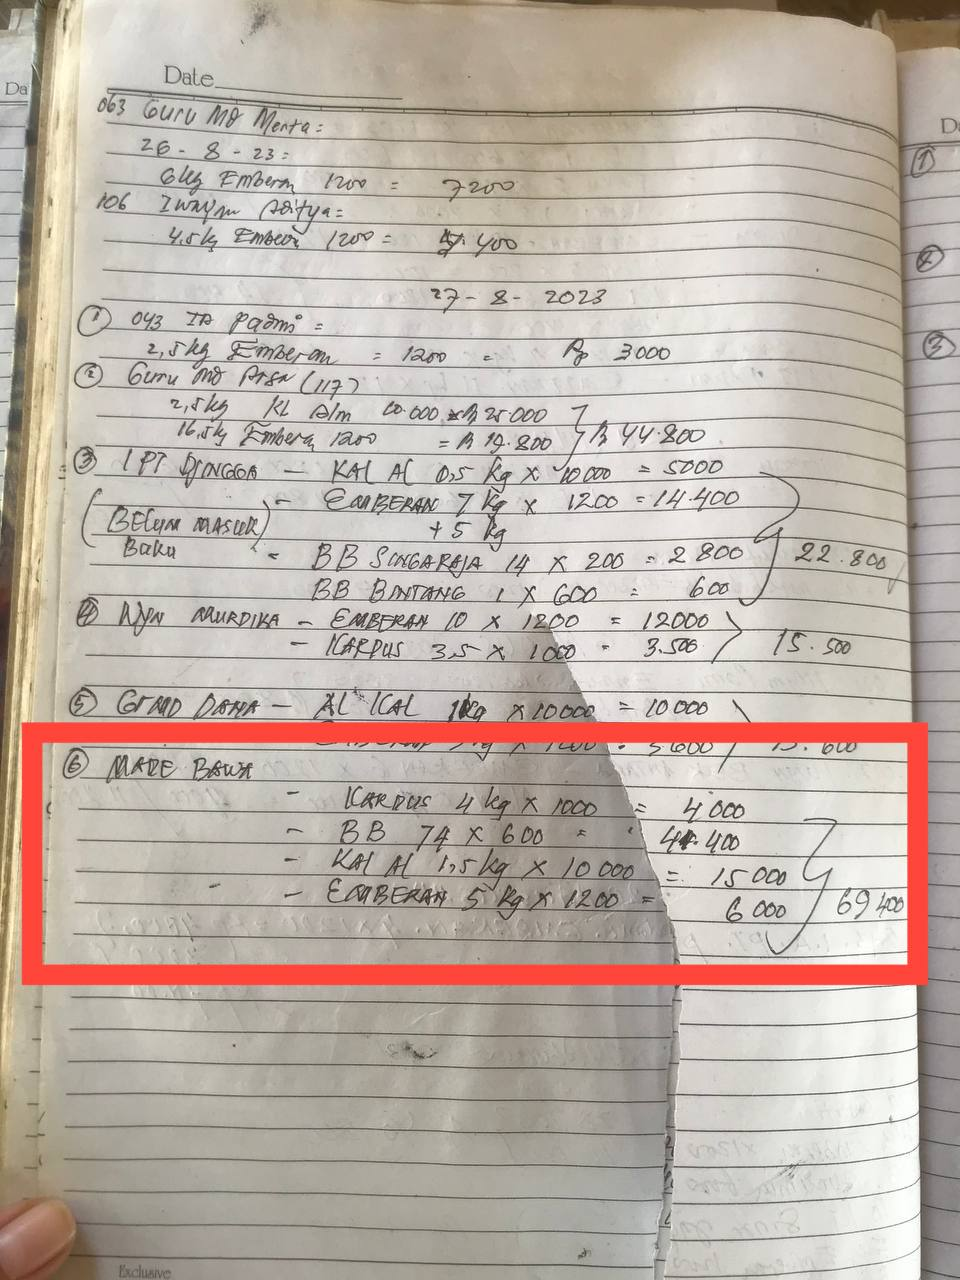 Date
063 Guru MD Merta =
26 - 8 - 23 =
6kg Emberan 1200 = 7200
106 Iwayan Aditya =
4.5kg Emberan 1200 = 5.400
27 - 8 - 2023
① 043 IA Padmi =
2,5kg Emberan = 1200 = Rp 3000
② Guru MD (117)
2,5kg Kl Alm 10.000 = Rp 25000
16,5kg Emberan 1200 = Rp 19.800 Rp 44.800
③ I PT DJINGGA – KAL AL 0,5 Kg x 10000 = 5000
– EMBERAN 7 Kg x 1200 = 14.400
(BELUM MASUK + 5 kg
Buku – BB SINGARAJA 14 x 200 = 2800 22.800
BB BINTANG 1 x 600 = 600
④ WYN MURDIKA – EMBERAN 10 x 1200 = 12000
– KARDUS 3.5 x 1000 = 3.500 15.500
⑤ DANA – AL KAL 1kg x 10000 = 10000
x 1200 = 3600 13.600
⑥ MADE BAWA
– KARDUS 4 kg x 1000 = 4000
– BB 74 x 600 = 44.400
– KAL AL 1,5 kg x 10 000 = 15000
– EMBERAN 5 Kg x 1200 = 6000 69400
Exclusive